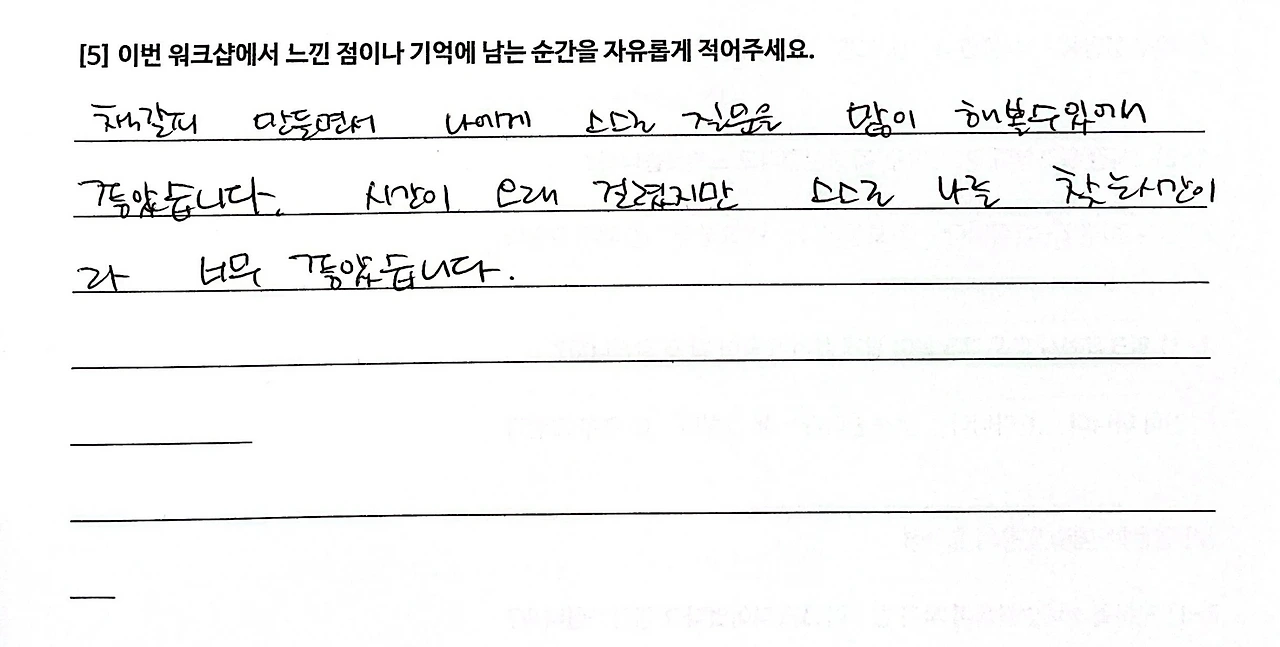 [5] 이번 워크샵에서 느낀 점이나 기억에 남는 순간을 자유롭게 적어주세요.
책갈피 만들면서 나에게 스스로 질문을 많이 해볼수있어서
좋았습니다. 시간이 오래 걸렸지만 스스로 나를 찾는시간이
라 너무 좋았습니다.